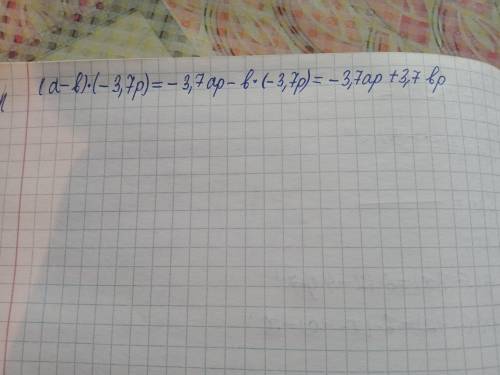 (a-b)·(-3,7p)=-3,7ap-b·(-3,7p)=-3,7ap+3,7bp